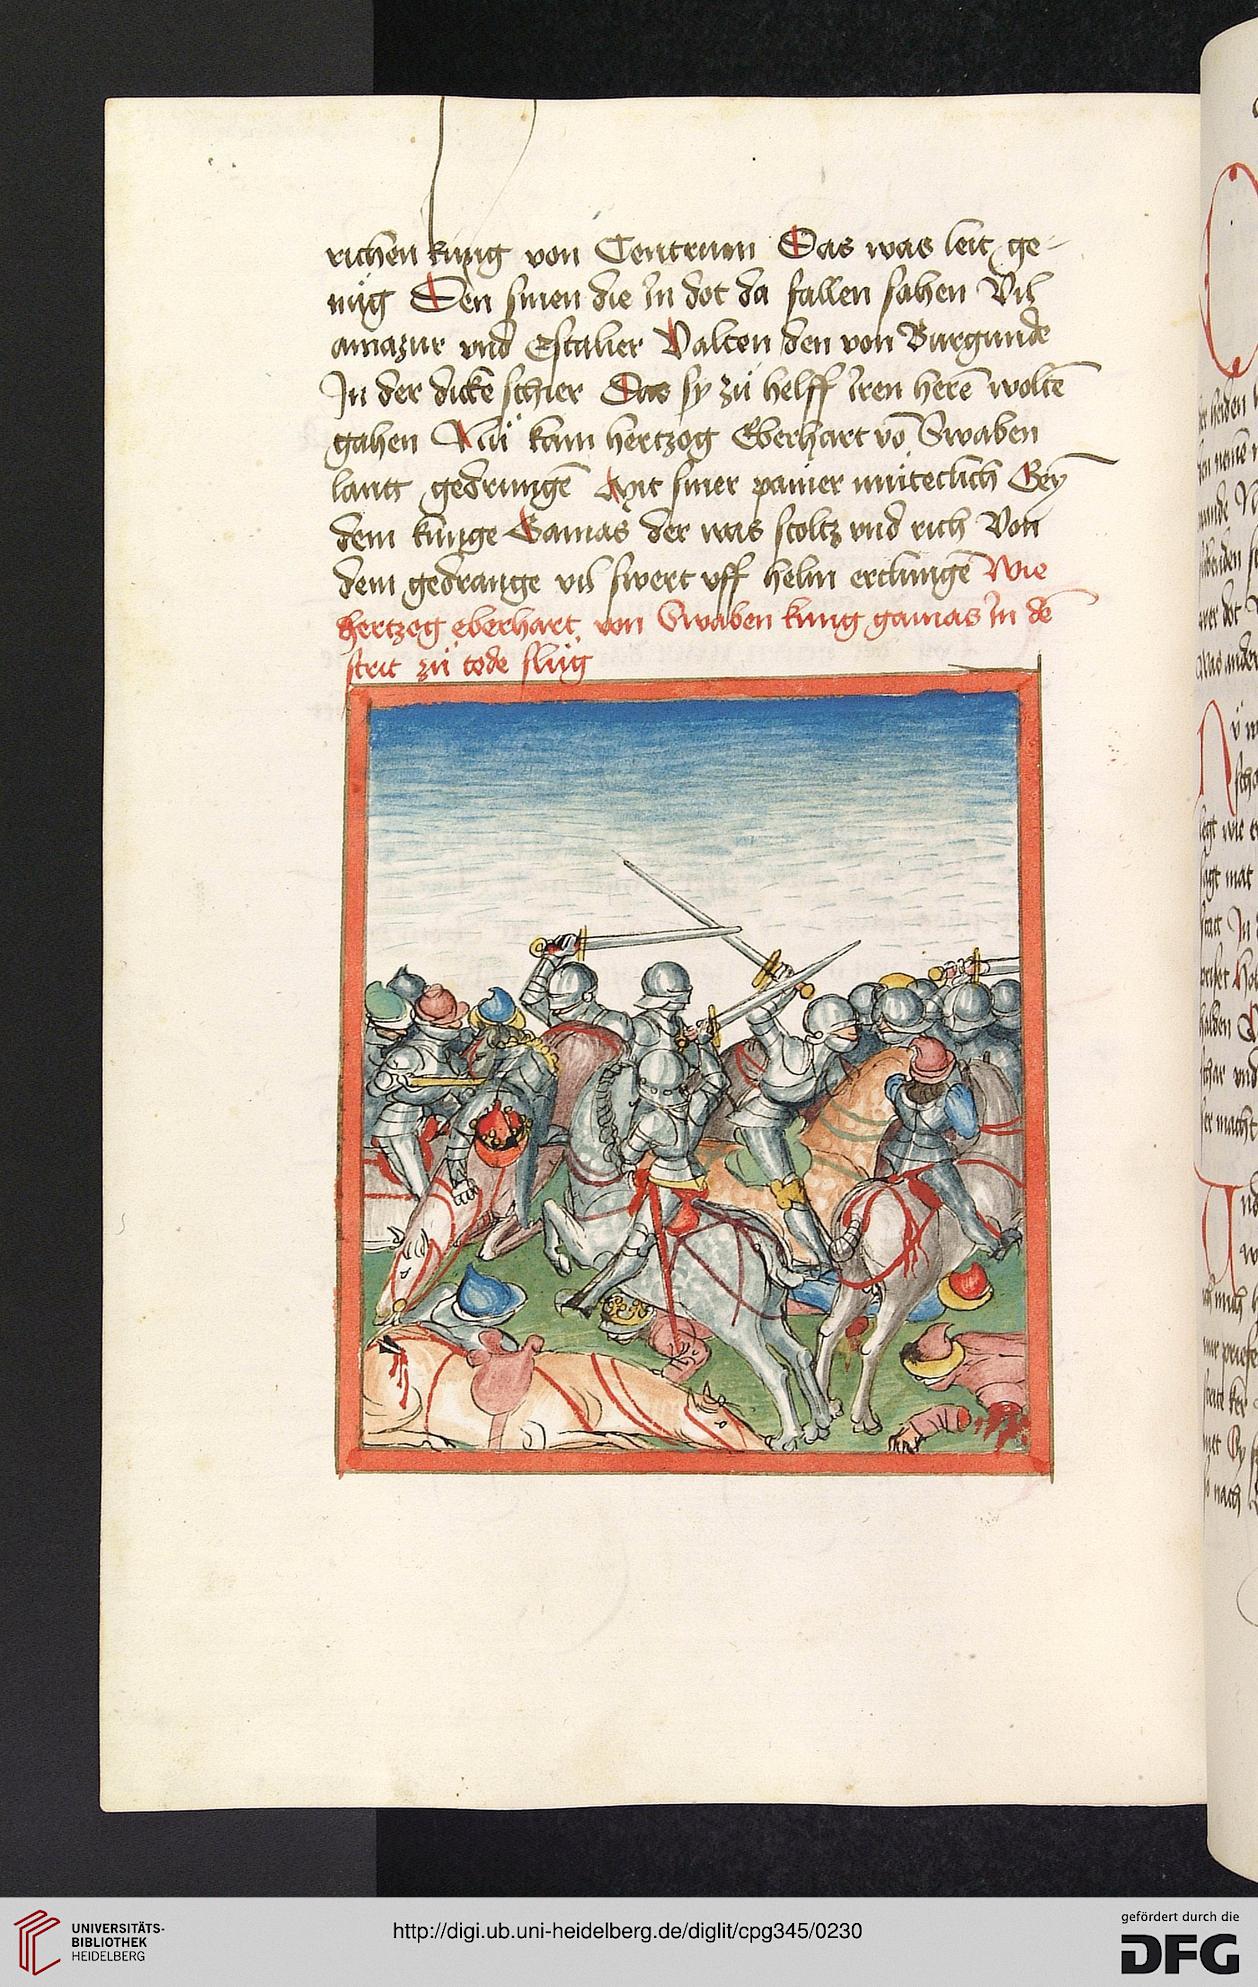 richen kung von Centrum Das was leit ge-
nüg Den sinen die In dot da fallen sahen Vil
amazur vnd Escalier Valten den von Burgunde
In der dicke schier Das sy zü helff Iren herē woltē
gahen Nü kam hertzog Eberhart vō Swaben
lant gedrungē Mit siner painier miteclich Gey
dem kunge Gamas der was stoltz vnd rich Von
dem gedrange vil swert vff helm erclungē Wie
hertzog eberhart von Swaben kung gamas In dē
strit zü tode slüg
UNIVERSITÄTS-
BIBLIOTHEK
HEIDELBERG
http://digi.ub.uni-heidelberg.de/diglit/cpg345/0230
gefördert durch die
DFG